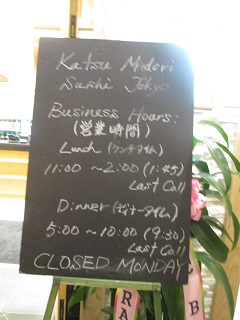 Katsu Midori
Sushi Tokyo
Business Hours:
(営業時間)
Lunch (ランチタイム)
11:00 ~ 2:00 (1:45)
Last Call
Dinner (ディナータイム)
5:00 ~ 10:00 (9:30)
Last Call
CLOSED MONDAY
RA
B